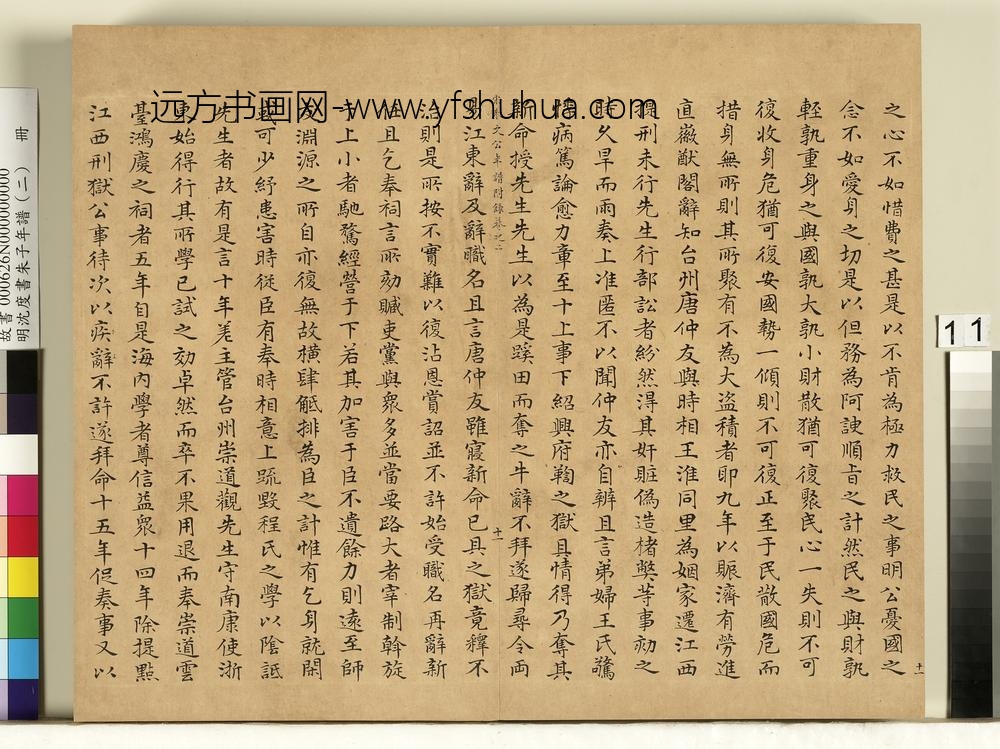 之心不如惜費之甚是以不肯為極力救民之事明公憂國之
念不如愛身之切是以但務為阿諛順旨之計然民之與財孰
輕孰重身之與國孰大孰小財散猶可復聚民心一失則不可
復收身危猶可復安國勢一傾則不可復正至于民散國危而
措身無所則其所聚有不為大盜積者耶九年以賑濟有勞進
直徽猷閣辭知台州唐仲友與時相王淮同里為姻家遷江西
提刑未行先生行部訟者紛然得其奸贓偽造楮弊等事劾之
時久旱而雨奏上淮匿不以聞仲友亦自辨且言弟婦王氏驚
悸病篤論愈力章至十上事下紹興府鞫之獄具情得乃奪其
新命授先生先生以為是蹊田而奪之牛辭不拜遂歸尋令兩
文公年譜附錄卷之二
十一
易江東辭及辭職名且言唐仲友雖寢新命已具之獄竟釋不
治則是所按不實難以復沾恩賞詔並不許始受職名再辭新
任且乞奉祠言所劾贓吏黨與眾多並當要路大者宰制斡旋
于上小者馳騖經營于下若其加害于臣不遺餘力則遠至師
友淵源之所自亦復無故橫肆觝排為臣之計惟有乞身就閑
或可少紓患害時從臣有奉時相意上疏毀程氏之學以陰詆
先生者故有是言十年差主管台州崇道觀先生守南康使浙
東始得行其所學已試之効卓然而卒不果用退而奉崇道雲
臺鴻慶之祠者五年自是海內學者尊信益眾十四年除提點
江西刑獄公事待次以疾辭不許遂拜命十五年促奏事又以
十一
远方书画网-www.yfshuhua.com
故書 000626N000000000
明沈度書朱子年譜(二) 冊
11